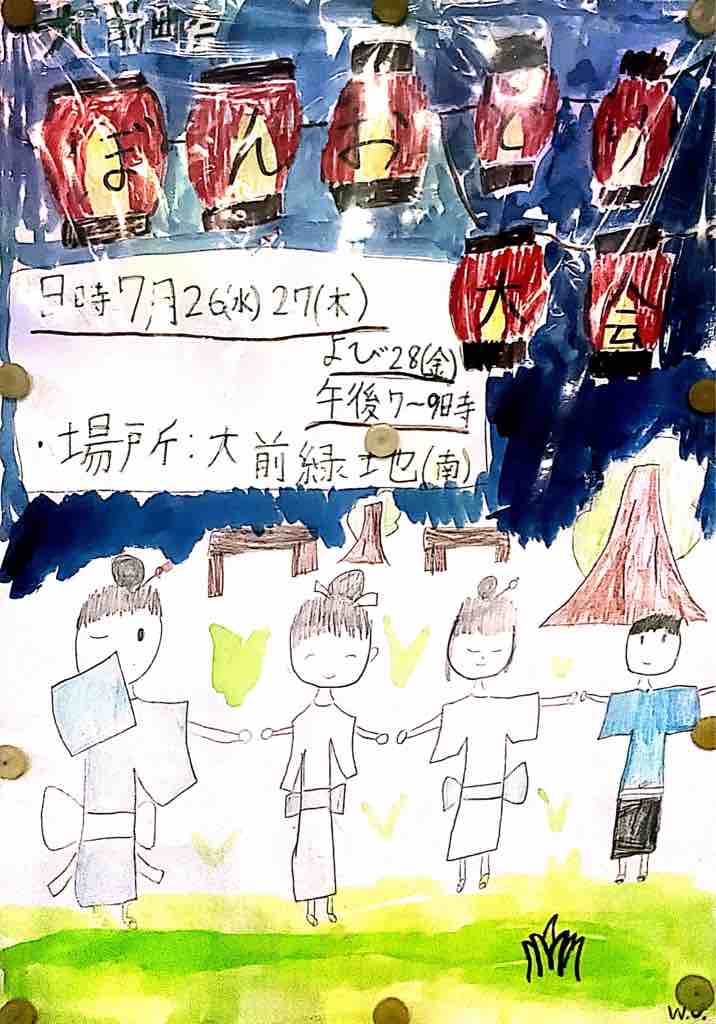 大前町会
ぼんおどり
大会
日時7月26(水)27(木)
よび28(金)
午後7〜9時
・場所:大前緑地(南)
W.U.